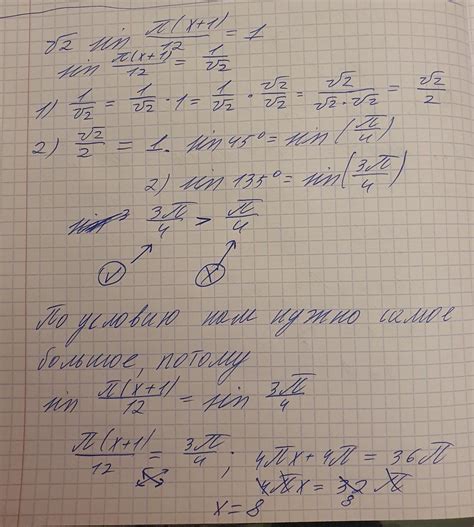 √2 sin π(x+1)/12 = 1
sin π(x+1)/12 = 1/√2
1) 1/√2 = 1/√2 · 1 = 1/√2 · √2/√2 = √2/√2·√2 = √2/2
2) √2/2 = 1. sin 45° = sin (π/4)
2) sin 135° = sin (3π/4)
3π/4 > π/4
V X
По условию нам нужно самое
большое, потому
sin π(x+1)/12 = sin 3π/4
π(x+1)/12 = 3π/4 ; 4πx + 4π = 36π
4πx = 32 π
8
x = 8